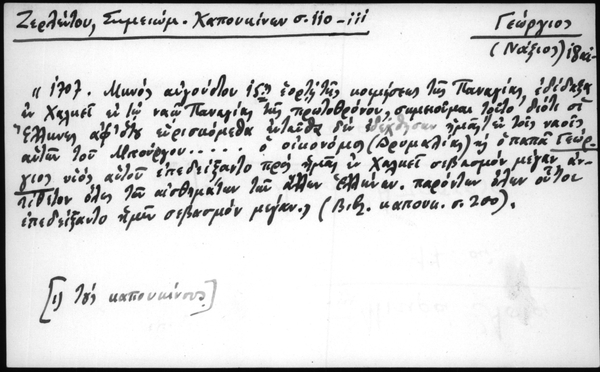 Ζερλέντου, Σημειώμ. Καπουκίνων σ. 110-111
Γεώργιος
(Νάξιος) ἱερεύς
"1707. Μηνὸς αὐγούστου 15ῃ ἑορτῇ τῆς κοιμήσεως τῆς Παναγίας, ἐδίδαξα
ἐν Χαλκεῖ ἐν τῷ ναῷ Παναγίας τῆς πρωτοθρόνου, σημειοῦμαι τοῦτο διότι οἱ
Ἕλληνες ἀφ' ὅτου εὑρισκόμεθα ἐνταῦθα δὲν ἐδέχθησαν ἡμᾶς(1) ἐν τοῖς ναοῖς
αὐτῶν τοῦ Μπούργου..... ὁ οἰκονόμος (Δρυμαλίας) καὶ ὁ παπᾶ Γεώρ-
γιος υἱὸς αὐτοῦ ἐπεδείξαντο πρὸς ἡμᾶς ἐν Χαλκεῖ σεβασμὸν μέγαν ἀν-
τίθετον ὅλως τῶν αἰσθημάτων τῶν ἄλλων Ἑλλήνων. παρόντων ὅλων οὗτοι
ἐπεδείξαντο ἡμῖν σεβασμὸν μέγαν." (Βιβλ. καπουκ. σ. 200).
[1) τοὺς καπουκίνους.]